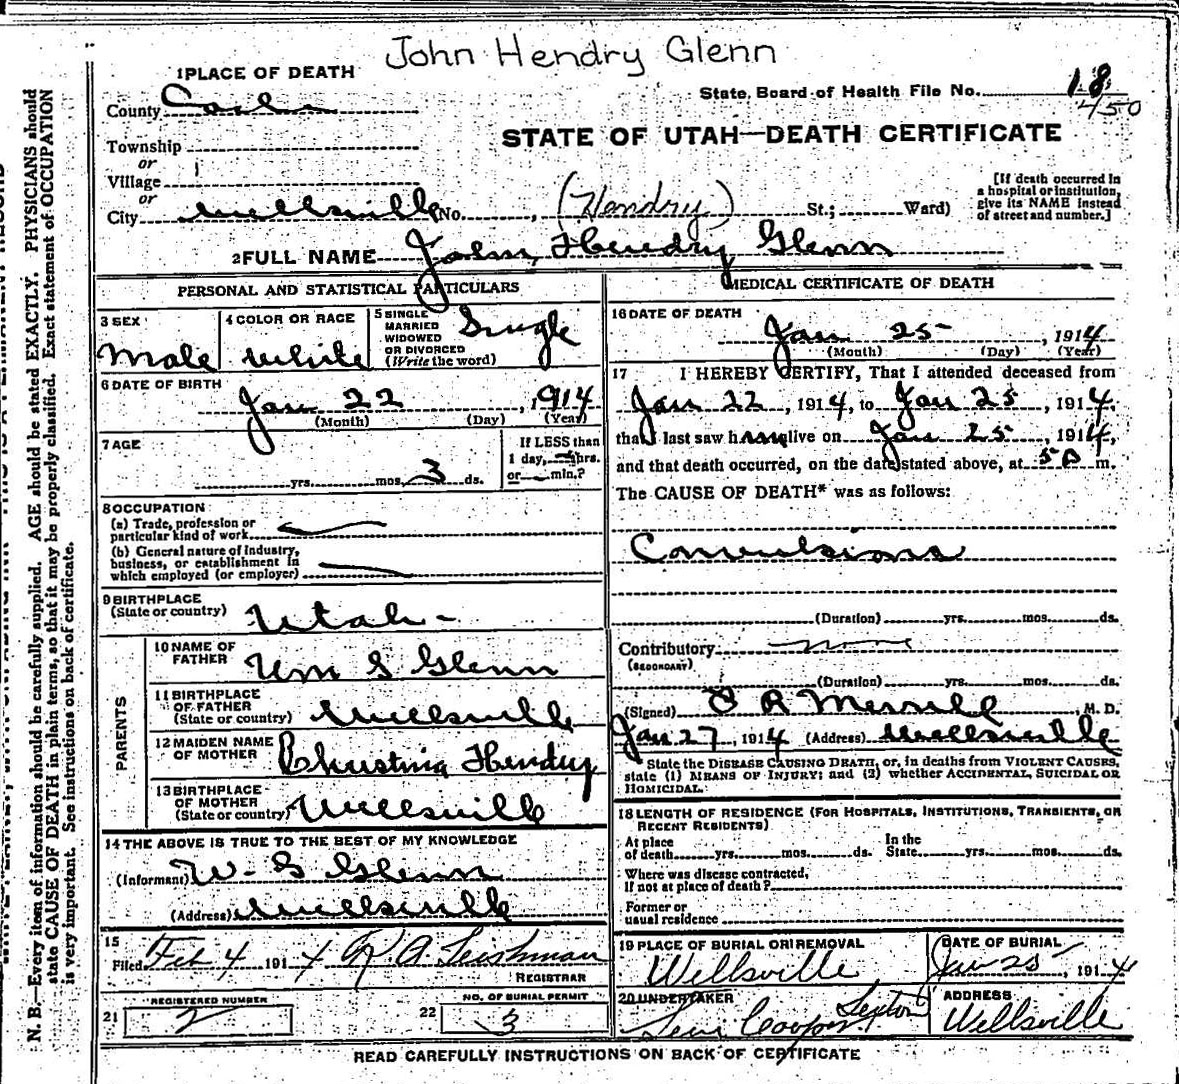 John Hendry Glenn
1 PLACE OF DEATH
County Cache
State Board of Health File No. 18
450
STATE OF UTAH—DEATH CERTIFICATE
Township
or
Village
or
City Wellsville No. , (Hendry) St.; Ward)
[If death occurred in
a hospital or institution,
give its NAME instead
of street and number.]
2 FULL NAME John Hendry Glenn
PERSONAL AND STATISTICAL PARTICULARS
3 SEX
Male
4 COLOR OR RACE
White
5 SINGLE
MARRIED
WIDOWED
OR DIVORCED
(Write the word)
Single
6 DATE OF BIRTH
Jan 22, 1914
(Month) (Day) (Year)
7 AGE
yrs. mos. 3 ds.
If LESS than
1 day, hrs.
or min.?
8 OCCUPATION
(a) Trade, profession or
particular kind of work
(b) General nature of industry,
business, or establishment in
which employed (or employer)
9 BIRTHPLACE
(State or country) Utah
PARENTS
10 NAME OF
FATHER Wm S Glenn
11 BIRTHPLACE
OF FATHER
(State or country) Wellsville
12 MAIDEN NAME
OF MOTHER Christina Hendry
13 BIRTHPLACE
OF MOTHER
(State or country) Wellsville
14 THE ABOVE IS TRUE TO THE BEST OF MY KNOWLEDGE
(Informant) W. S Glenn
(Address) Wellsville
15
Filed Feb 4 1914 R. A. Leishman
REGISTRAR
REGISTERED NUMBER
21 2
NO. OF BURIAL PERMIT
22 3
MEDICAL CERTIFICATE OF DEATH
16 DATE OF DEATH
Jan 25, 1914
(Month) (Day) (Year)
17 I HEREBY CERTIFY, That I attended deceased from
Jan 22, 1914, to Jan 25, 1914,
that I last saw him alive on Jan 25, 1914,
and that death occurred, on the date stated above, at 5 A m.
The CAUSE OF DEATH* was as follows:
Convulsions
(Duration) yrs. mos. ds.
Contributory none
(SECONDARY)
(Duration) yrs. mos. ds.
(Signed) O R Merrill, M. D.
Jan 27, 1914 (Address) Wellsville
State the DISEASE CAUSING DEATH, or, in deaths from VIOLENT CAUSES,
state (1) MEANS OF INJURY; and (2) whether ACCIDENTAL, SUICIDAL OR
HOMICIDAL.
18 LENGTH OF RESIDENCE (FOR HOSPITALS, INSTITUTIONS, TRANSIENTS, OR
RECENT RESIDENTS)
At place
of death yrs. mos. ds.
In the
State yrs. mos. ds.
Where was disease contracted,
If not at place of death?
Former or
usual residence
19 PLACE OF BURIAL OR REMOVAL
Wellsville
DATE OF BURIAL
Jan 25, 1914
20 UNDERTAKER
Levi Cooper Sexton
ADDRESS
Wellsville
READ CAREFULLY INSTRUCTIONS ON BACK OF CERTIFICATE
N. B.—Every item of information should be carefully supplied. AGE should be stated EXACTLY. PHYSICIANS should
state CAUSE OF DEATH in plain terms, so that it may be properly classified. Exact statement of OCCUPATION
is very important. See instructions on back of certificate.